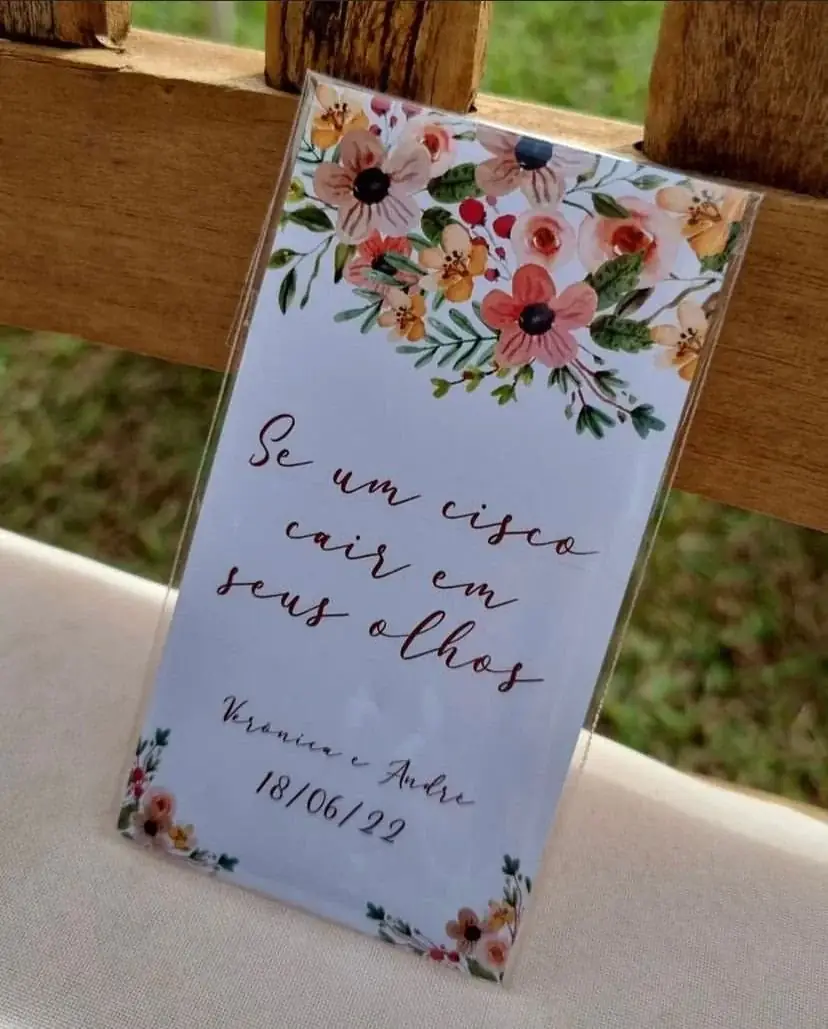 Se um cisco
cair em
seus olhos
Verônica e André
18/06/22